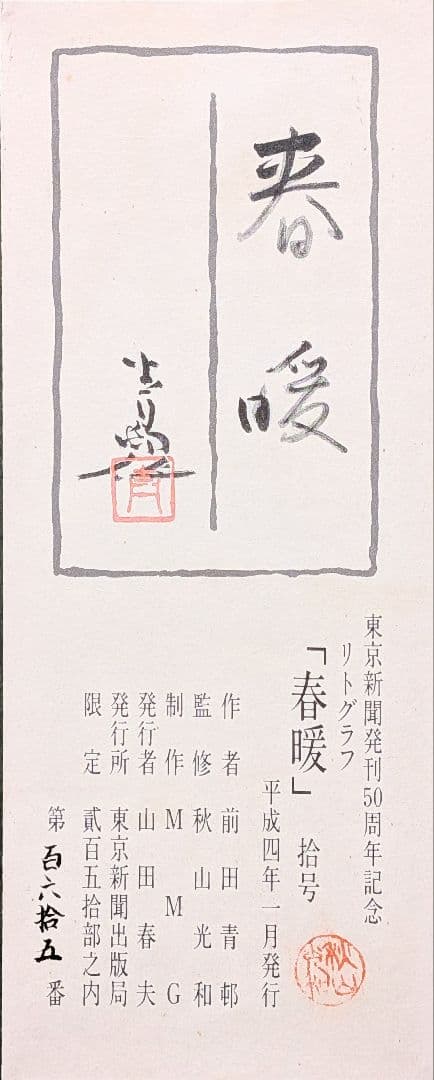 春暖
青邨
青
東京新聞発刊50周年記念
リトグラフ
「春暖」 拾号
平成四年一月発行
作者 前田青邨
監修 秋山光和
制作 MMG
発行者 山田春夫
発行所 東京新聞出版局
限定 貳百五拾部之内
第百六拾五番